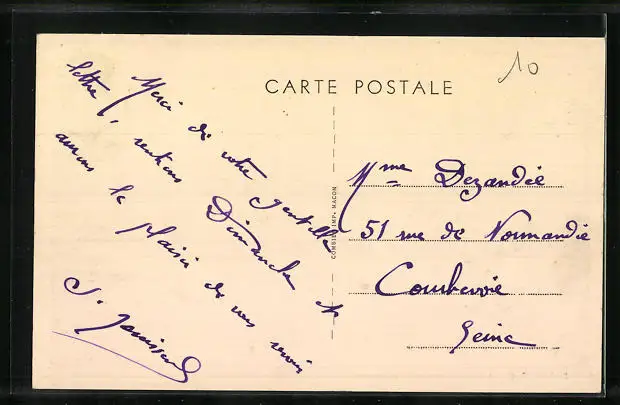 CARTE POSTALE
10
Merci de votre gentille
lettre, rentrons Dimanche et
aurons le plaisir de vous revoir
COMBIER IMP. MACON
Mme Dezandée
51 rue de Normandie
Courbevoie
Seine